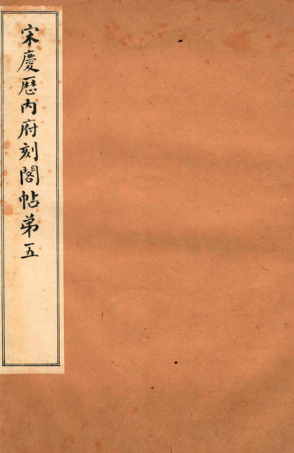 宋慶歷內府刻閣帖第五